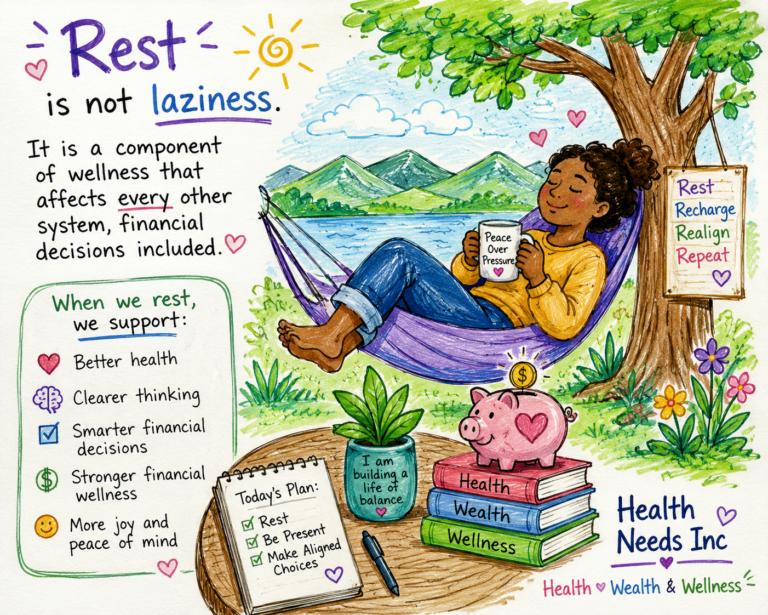 Rest
is not laziness.
It is a component
of wellness that
affects every other
system, financial
decisions included.
When we rest,
we support:
Better health
Clearer thinking
Smarter financial
decisions
Stronger financial
wellness
More joy and
peace of mind
Peace
Over
Pressure
Rest
Recharge
Realign
Repeat
$
$
Today's Plan:
Rest
Be Present
Make Aligned
Choices
I am
building a
life of
balance
Health
Wealth
Wellness
Health
Needs Inc
Health Wealth & Wellness